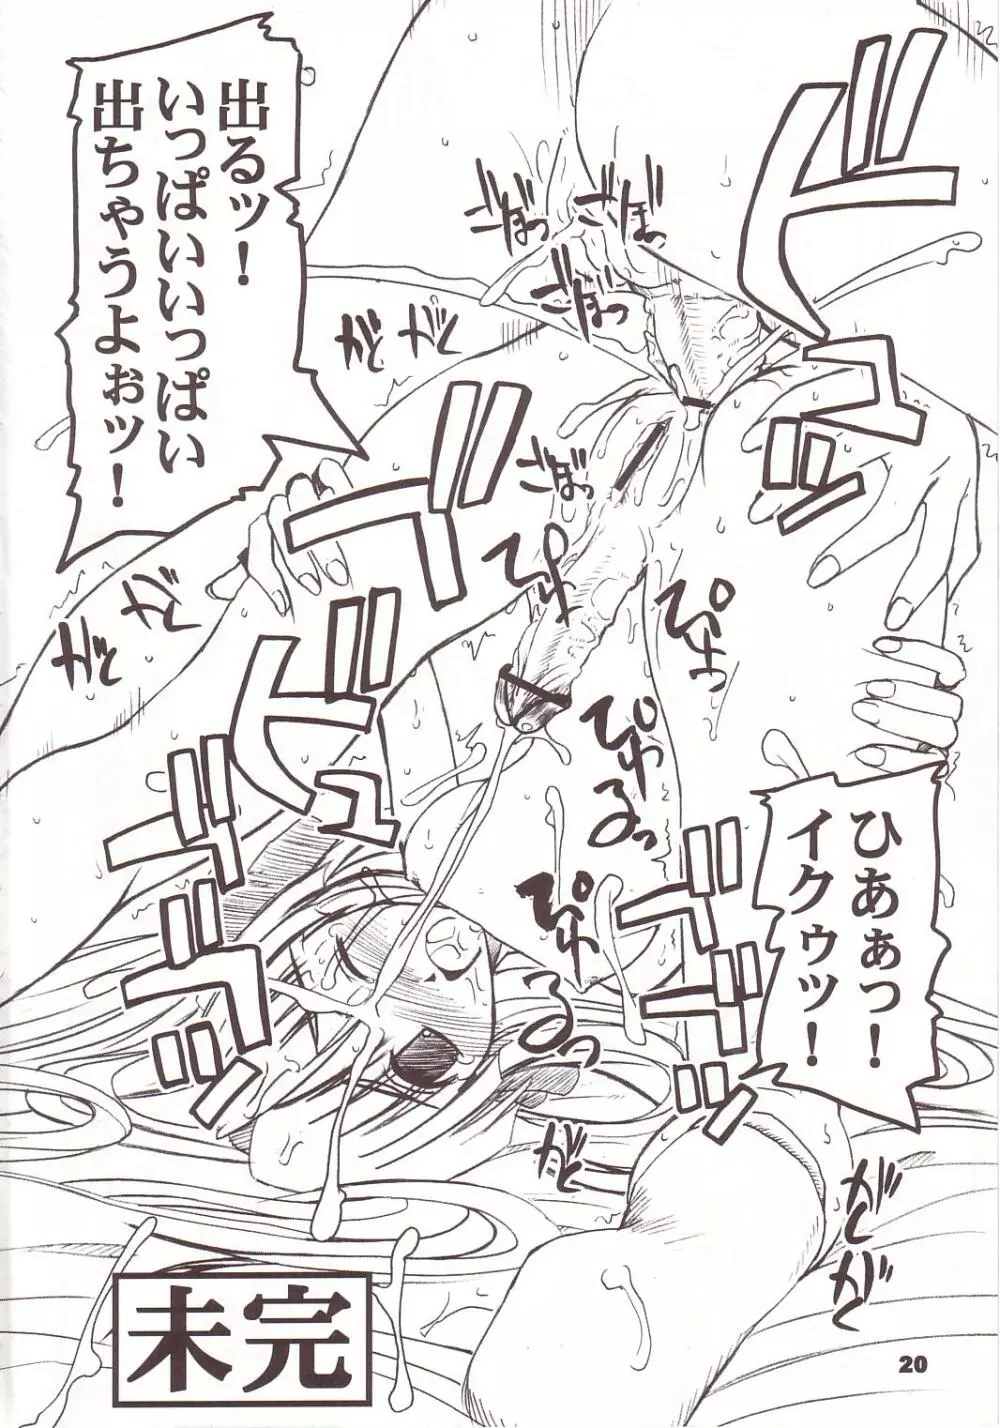 ドビュッ
ごぽっ
ごぽっ
ごぽっ
出るッ！
いっぱいいっぱい
出ちゃうよぉッ！
がく
がく
ごぽっ
ぴゅ
ぴゅっ
がく
がく
ビュ
ぴゅるっ
ひあぁっ！
イクゥッ！
ぴゅるっ
がく
がく
がく
未完
20